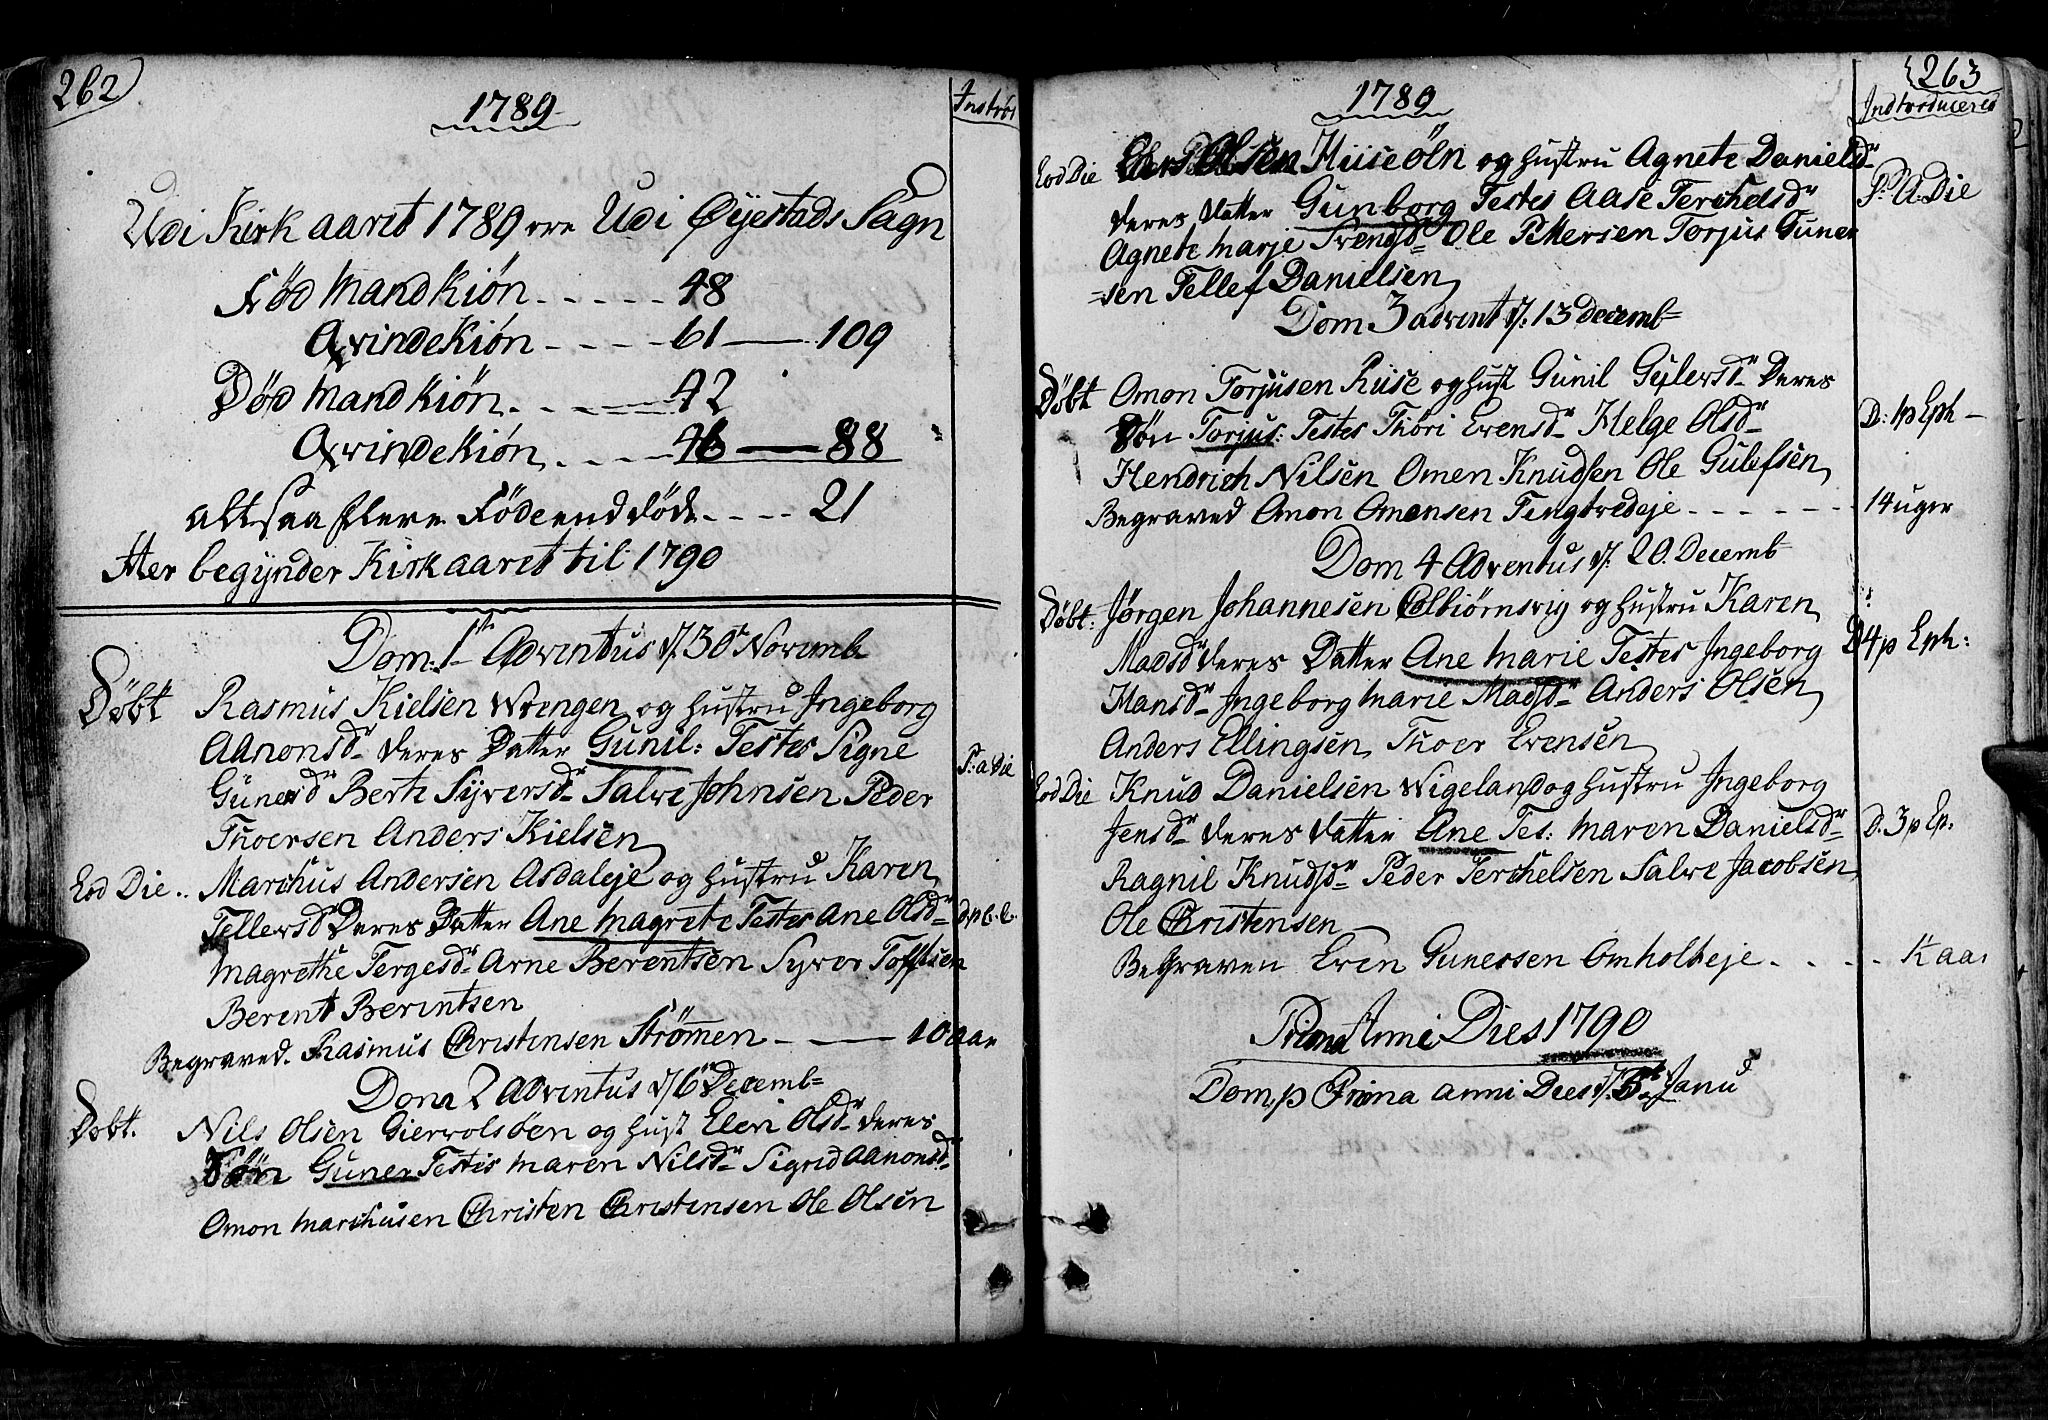 262
1789
Introd
Udi Kirk aaret 1789 ere Udi Øyestads Sagn
Fød Mandkiön - - - - - 48
Qvindekiön - - - - 61 — 109
Död Mandkiön - - - - - 42
Qvindekiön - - - - 46 — 88
altsaa flere Födeend döde - - - - 21
Her begynder Kirkaaret til 1790
Dom: 1te Adventus d/ 30te Novemb
Döbt Rasmus Kielsen Wrengen og Hustru Ingeborg
Aanonsdr deres Datter Gunil: Testes Signe
S: a Die
Gunersdr Berte Syversdr Salve Johnsen Peder
Thoersen Anders Kielsen
Eod Die .. Marchus Andersen Asdaleje og Hustru Karen
Tellevsdr Deres Datter Ane Magrete Testes Ane Olsdr
Magrethe Tergesdr Arne Berentsen Syver Toffsen
Berent Berentsen
Begraved. Rasmus Christensen Strömmen - — 10 aar
Dom 2 Adventus d/ 6te Decemb
Döbt. Nils Olsen Giervolsöen og Hust Eleri Olsdr deres
Sön Guner Testes Maren Nilsdr Sigrid Aanonsdr
Omon Marchusen Christen Christensen Ole Olsen
263
1789
Indtroducered
Eod Die Olsen Huseöln og Hustru Agnete Danielsdr
S: A: Die
deres Datter Gunborg Testes Aase Terchelsdr
Agnete Marje Svendsdr Ole Pettersen Torjus Guner
=sen Tellef Danielsen
Dom 3 advent d/: 13 Decemb
Döbt Omon Torjusen Riise og Hust Gunil Gylersdr Deres
Sön Torjus: Testes Thöri Evensdr Helge Olsdr
D: 1 p Eph -
Hendrich Nilsen Omen Knudsen Ole Gulefsen
Begraved Omon Omensen Tingtvedeje - - - - - - - 14 uger
Dom 4 Adventus d/. 20. Decemb
Döbt: Jørgen Johannesen Colbiörnsvig og Hustru Karen
Madsdr deres Datter Ane Marie Testes Ingeborg
D 4 p Eph:
Hansdr Ingeborg Marie Madsdr Anders Olsen
Anders Ellingsen Thoer Evensen
Eod Die Knud Danielsen Wigeland og Hustru Ingeborg
Jensdr deres Datter Ane Tes: Maren Danielsdr
D: 3 p Ep:
Ragnil Knudsdr Peder Terchelsen Salve Jacobsen
Ole Christensen
Begraven Even Gunersen Omholteje - - - - -
Prima Anni Dies 1790
Dom p Prima anni Dies d/. 3te Janu